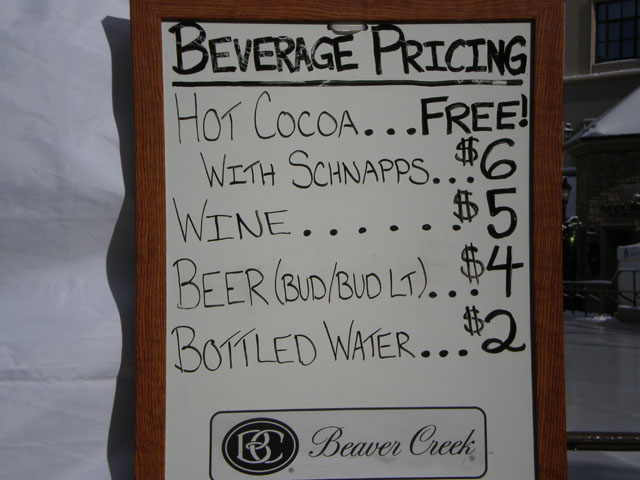 BEVERAGE PRICING
HOT COCOA...FREE!
WITH SCHNAPPS...$6
WINE......$5
BEER (BUD/BUD LT)...$4
BOTTLED WATER...$2
BC Beaver Creek